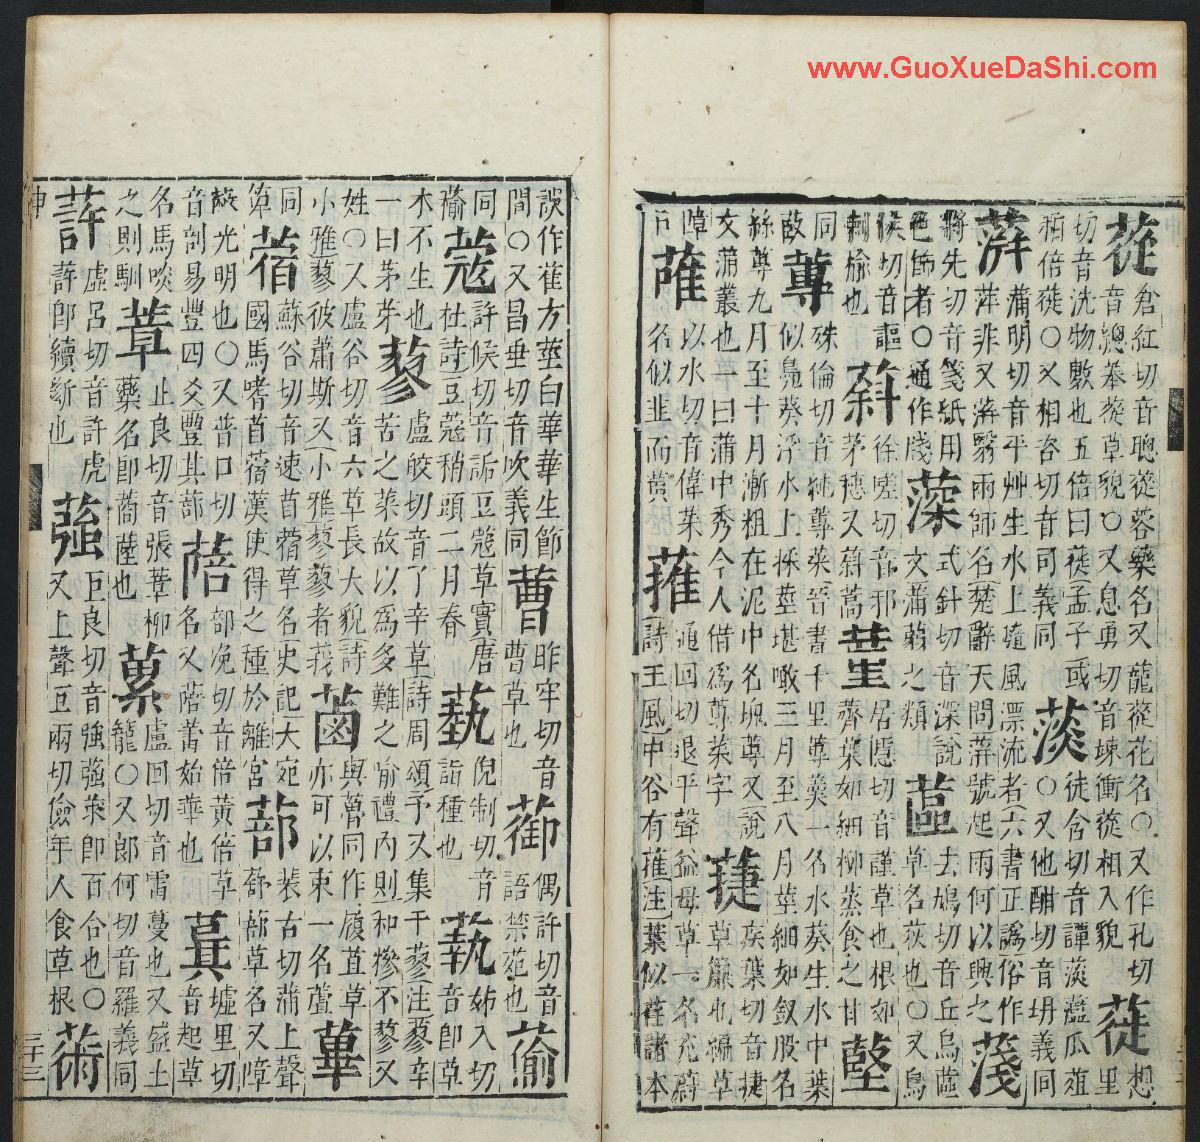 www.GuoXueDaShi.com
蓯
倉紅切音聰蓯蓉藥名又龍蓯花名〇又作孔切
音總菶蓯草貌〇又息勇切音竦衝蓯相入貌
蓰
想里
切音洗物數也五倍曰蓰孟子或
相倍蓰〇又相咨切音司義同
徒含切音譚
藍瓜菹
〇又他酣切音坍義同
蓱
蒲明切音平艸生水上隨風漂流者六書正譌俗作
萍非又蓱翳雨師名楚辭天問蓱號起雨何以興之
將先切音箋紙用
色飾者〇通作牋
式針切音深說
文蒲蒻之類
蓲
去鳩切音丘烏蓲
草名荻也〇又烏
侯切音謳
刺榆也
徐嗟切音邪
茅穗又
蒿
居隱切音謹草也根如
薺葉如細柳蒸食之甘
同上
蓴
殊倫切音純蓴菜晉書千里蓴羹一名水葵生水中葉
似鳧葵浮水上採莖堪噉三月至八月莖細如釵股名
絲蓴九月至十月漸粗在泥中名塊蓴又說
文蒲叢也一曰蒲中秀今人借爲蓴菜字
疾葉切音捷
草簾也編草
障
蓶
以水切音偉菜
名似韭而黄
蓷
通回切退平聲益母草一名充蔚
詩王風中谷有蓷注葉似荏諸本
誤作萑方莖白華華生節
間〇又昌垂切音吹義同
蓸
昨牢切音
曹草也
蓹
偶許切音
語禁苑也
同
蔲
許候切音詬豆蔲草實唐
杜詩豆蔲稍頭二月春
蓺
倪制切音
詣種也
蓻
姊入切
音卽草
木不生也
一曰茅芽
蓼
盧皎切音了辛草詩周頌予又集于蓼注蓼辛
苦之菜故以爲多難之喻禮內則和糝不蓼又
姓〇又盧谷切音六草長大貌詩
小雅蓼彼蕭斯又小雅蓼者莪
與蓾同作履苴草
亦可以束一名蔖
蓽
同
蓿
蘇谷切音速苜蓿草名史記大宛
國馬嗜苜蓿漢使得之種於離宮
蔀
裴古切蒲上聲
蔀草名又障
蔽光明也〇又普口切
音剖易豐四爻豐其蔀
蓓
部浼切音倍黄倍草
名又蓓蕾始華也
墟里切
音起草
名馬啖
之則馴
蔁
止良切音張蔁柳
藥名卽商陸也
蔂
盧回切音雷蔓也又盛土
籠〇又郎何切音羅義同
蓾
許
虛呂切音許虎
卽續斷也
巨良切音強
菜卽百合也〇
又上聲巨兩切儉年人食草根
申
三十三